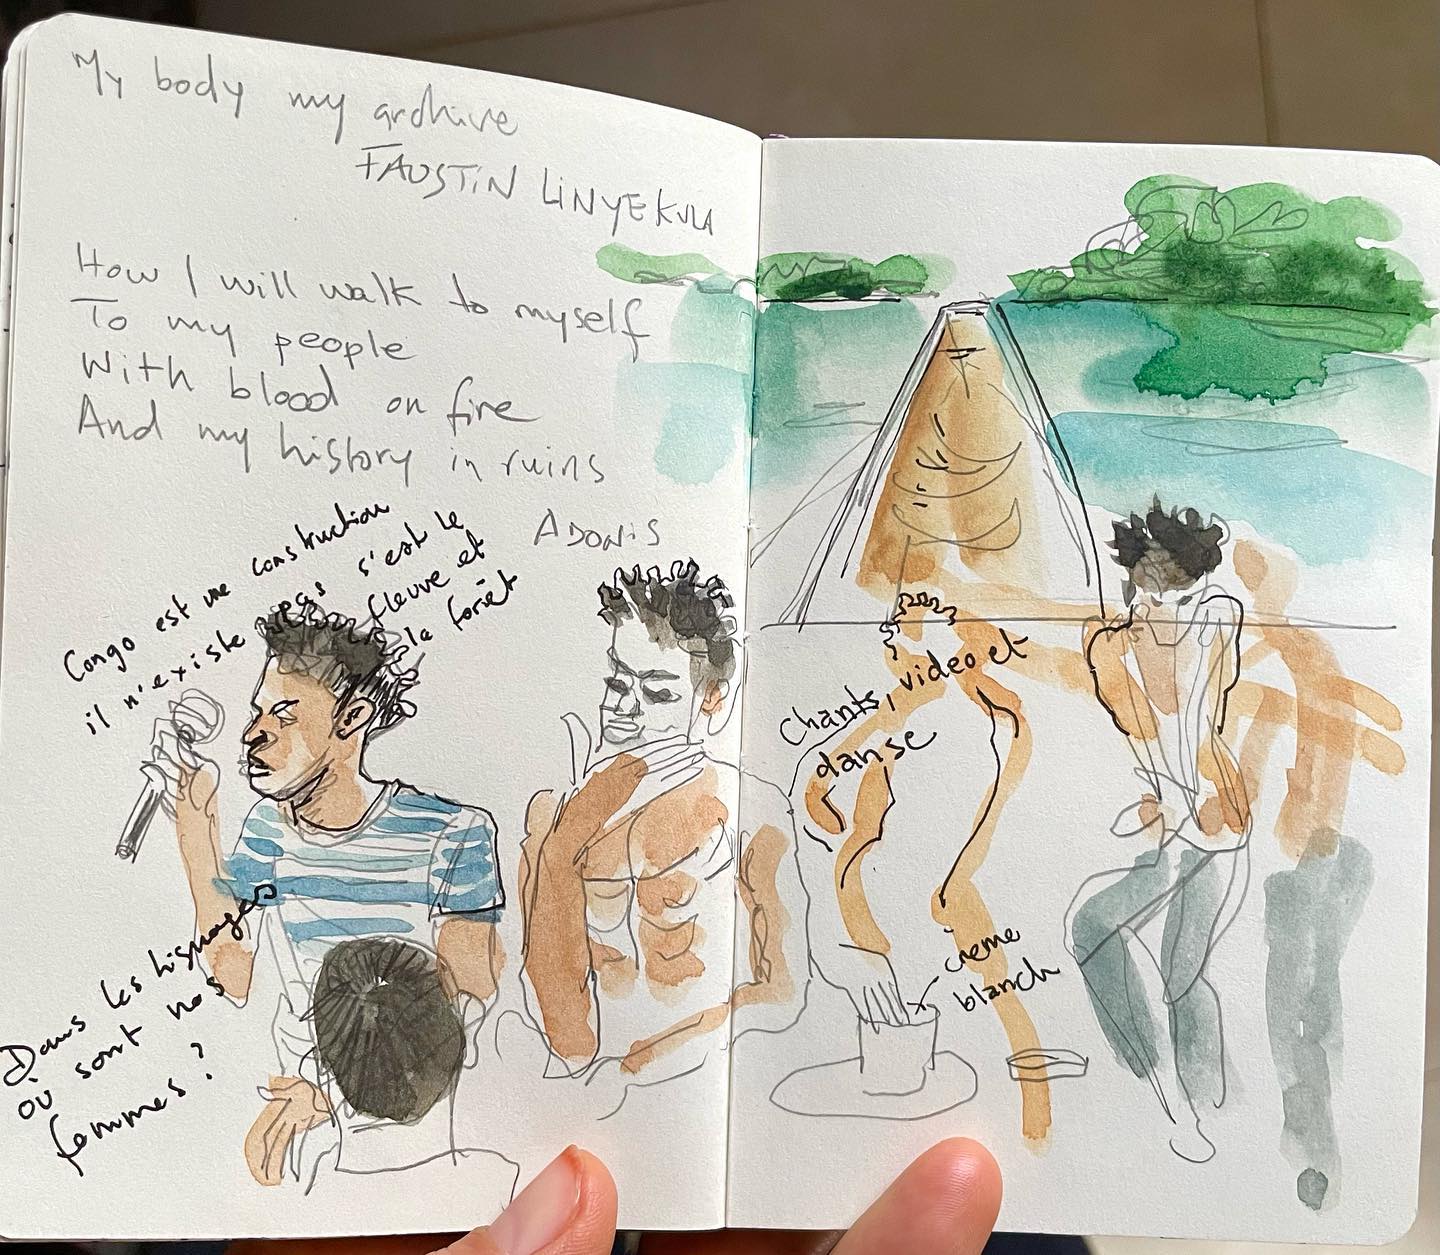 My body my archive
FAUSTIN LINYEKULA
How I will walk to myself
To my people
With blood on fire
And my history in ruins
ADONIS
Congo est une construction
il n'existe pas s'est le
fleuve et
la forêt
Dans les
où sont nos
femmes ?
Chants, video et
danse
creme
blanch